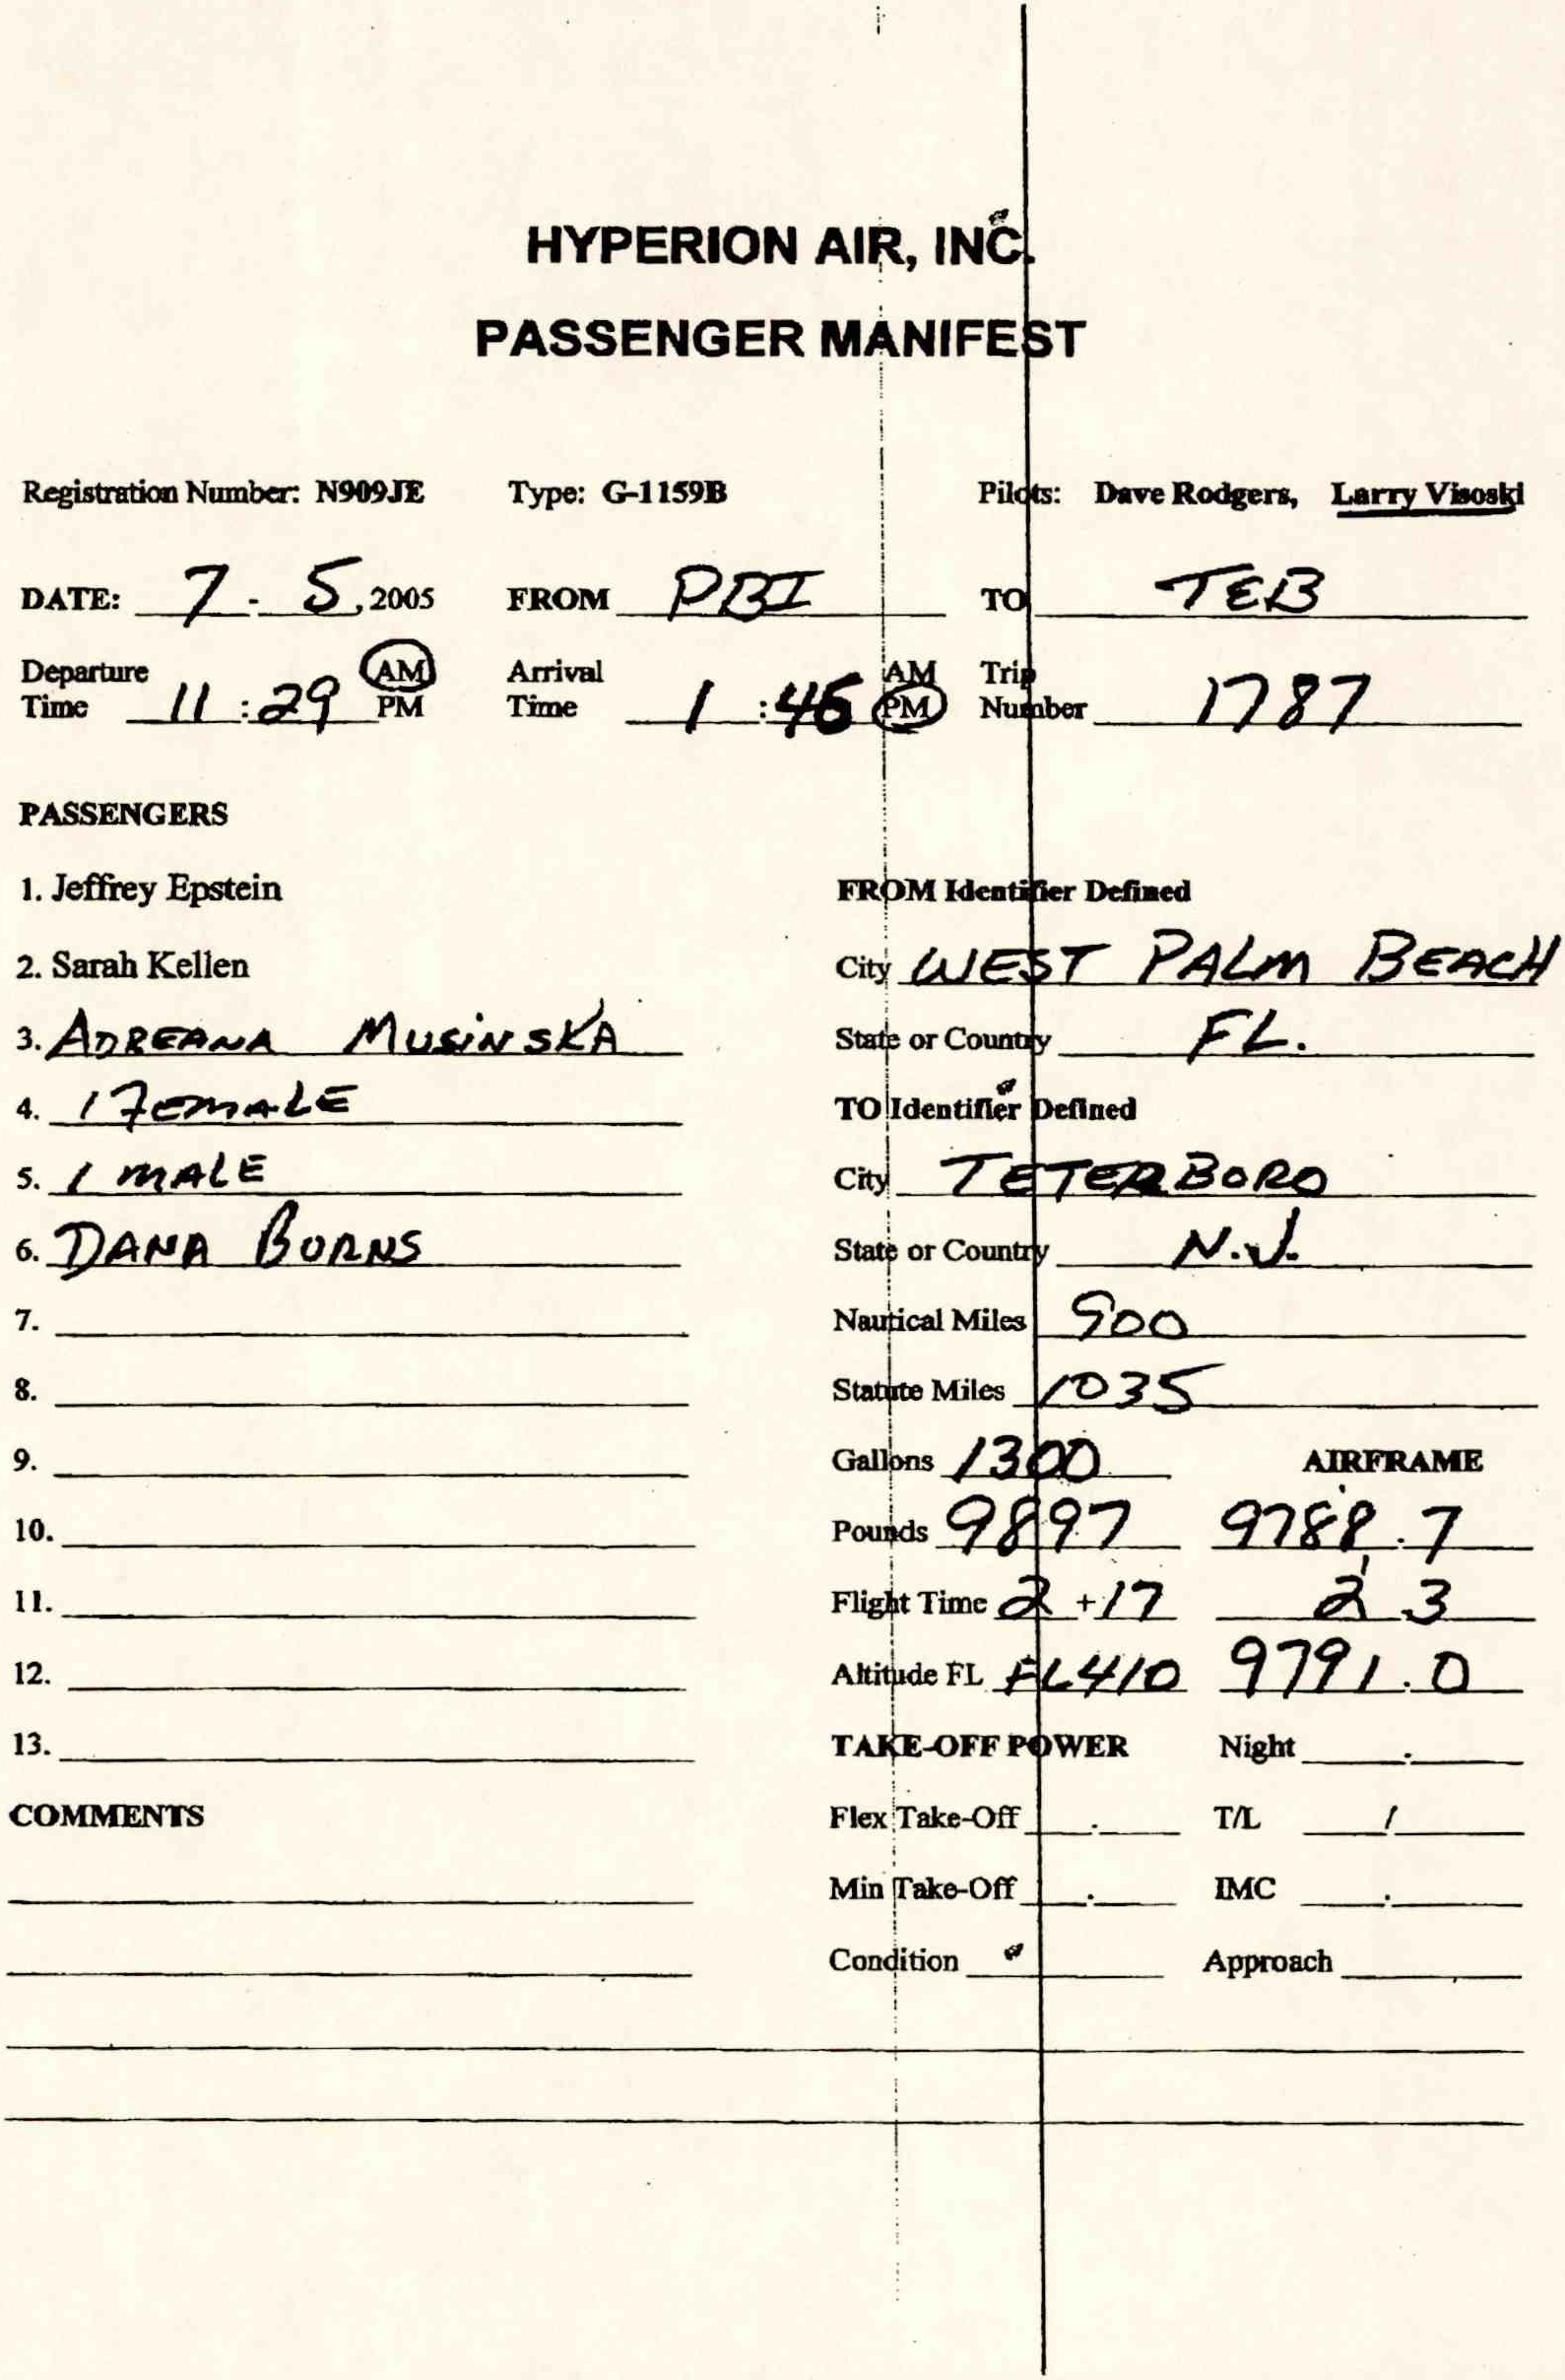 HYPERION AIR, INC.
PASSENGER MANIFEST
Registration Number: N909JE Type: G-1159B Pilots: Dave Rodgers, Larry Visoski
DATE: 7 - 5, 2005 FROM PBI TO TEB
Departure Time 11 : 29 AM PM Arrival Time 1 : 46 AM PM Trip Number 1787
PASSENGERS
1. Jeffrey Epstein
2. Sarah Kellen
3. ADREANA MUSINSKA
4. 1 FEMALE
5. 1 MALE
6. DANA BURNS
7.
8.
9.
10.
11.
12.
13.
COMMENTS
FROM Identifier Defined
City WEST PALM BEACH
State or Country FL.
TO Identifier Defined
City TETERBORO
State or Country N.J.
Nautical Miles 900
Statute Miles 1035
Gallons 1300 AIRFRAME
Pounds 9897 9788.7
Flight Time 2 + 17 2.3
Altitude FL FL410 9791.0
TAKE-OFF POWER Night .
Flex Take-Off . T/L /
Min Take-Off . IMC .
Condition Approach